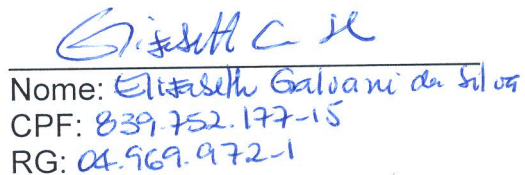 Elizabeth C. Sil
Nome: Elizabeth Galvani da Silva
CPF: 839.752.177-15
RG: 04.969.972-1